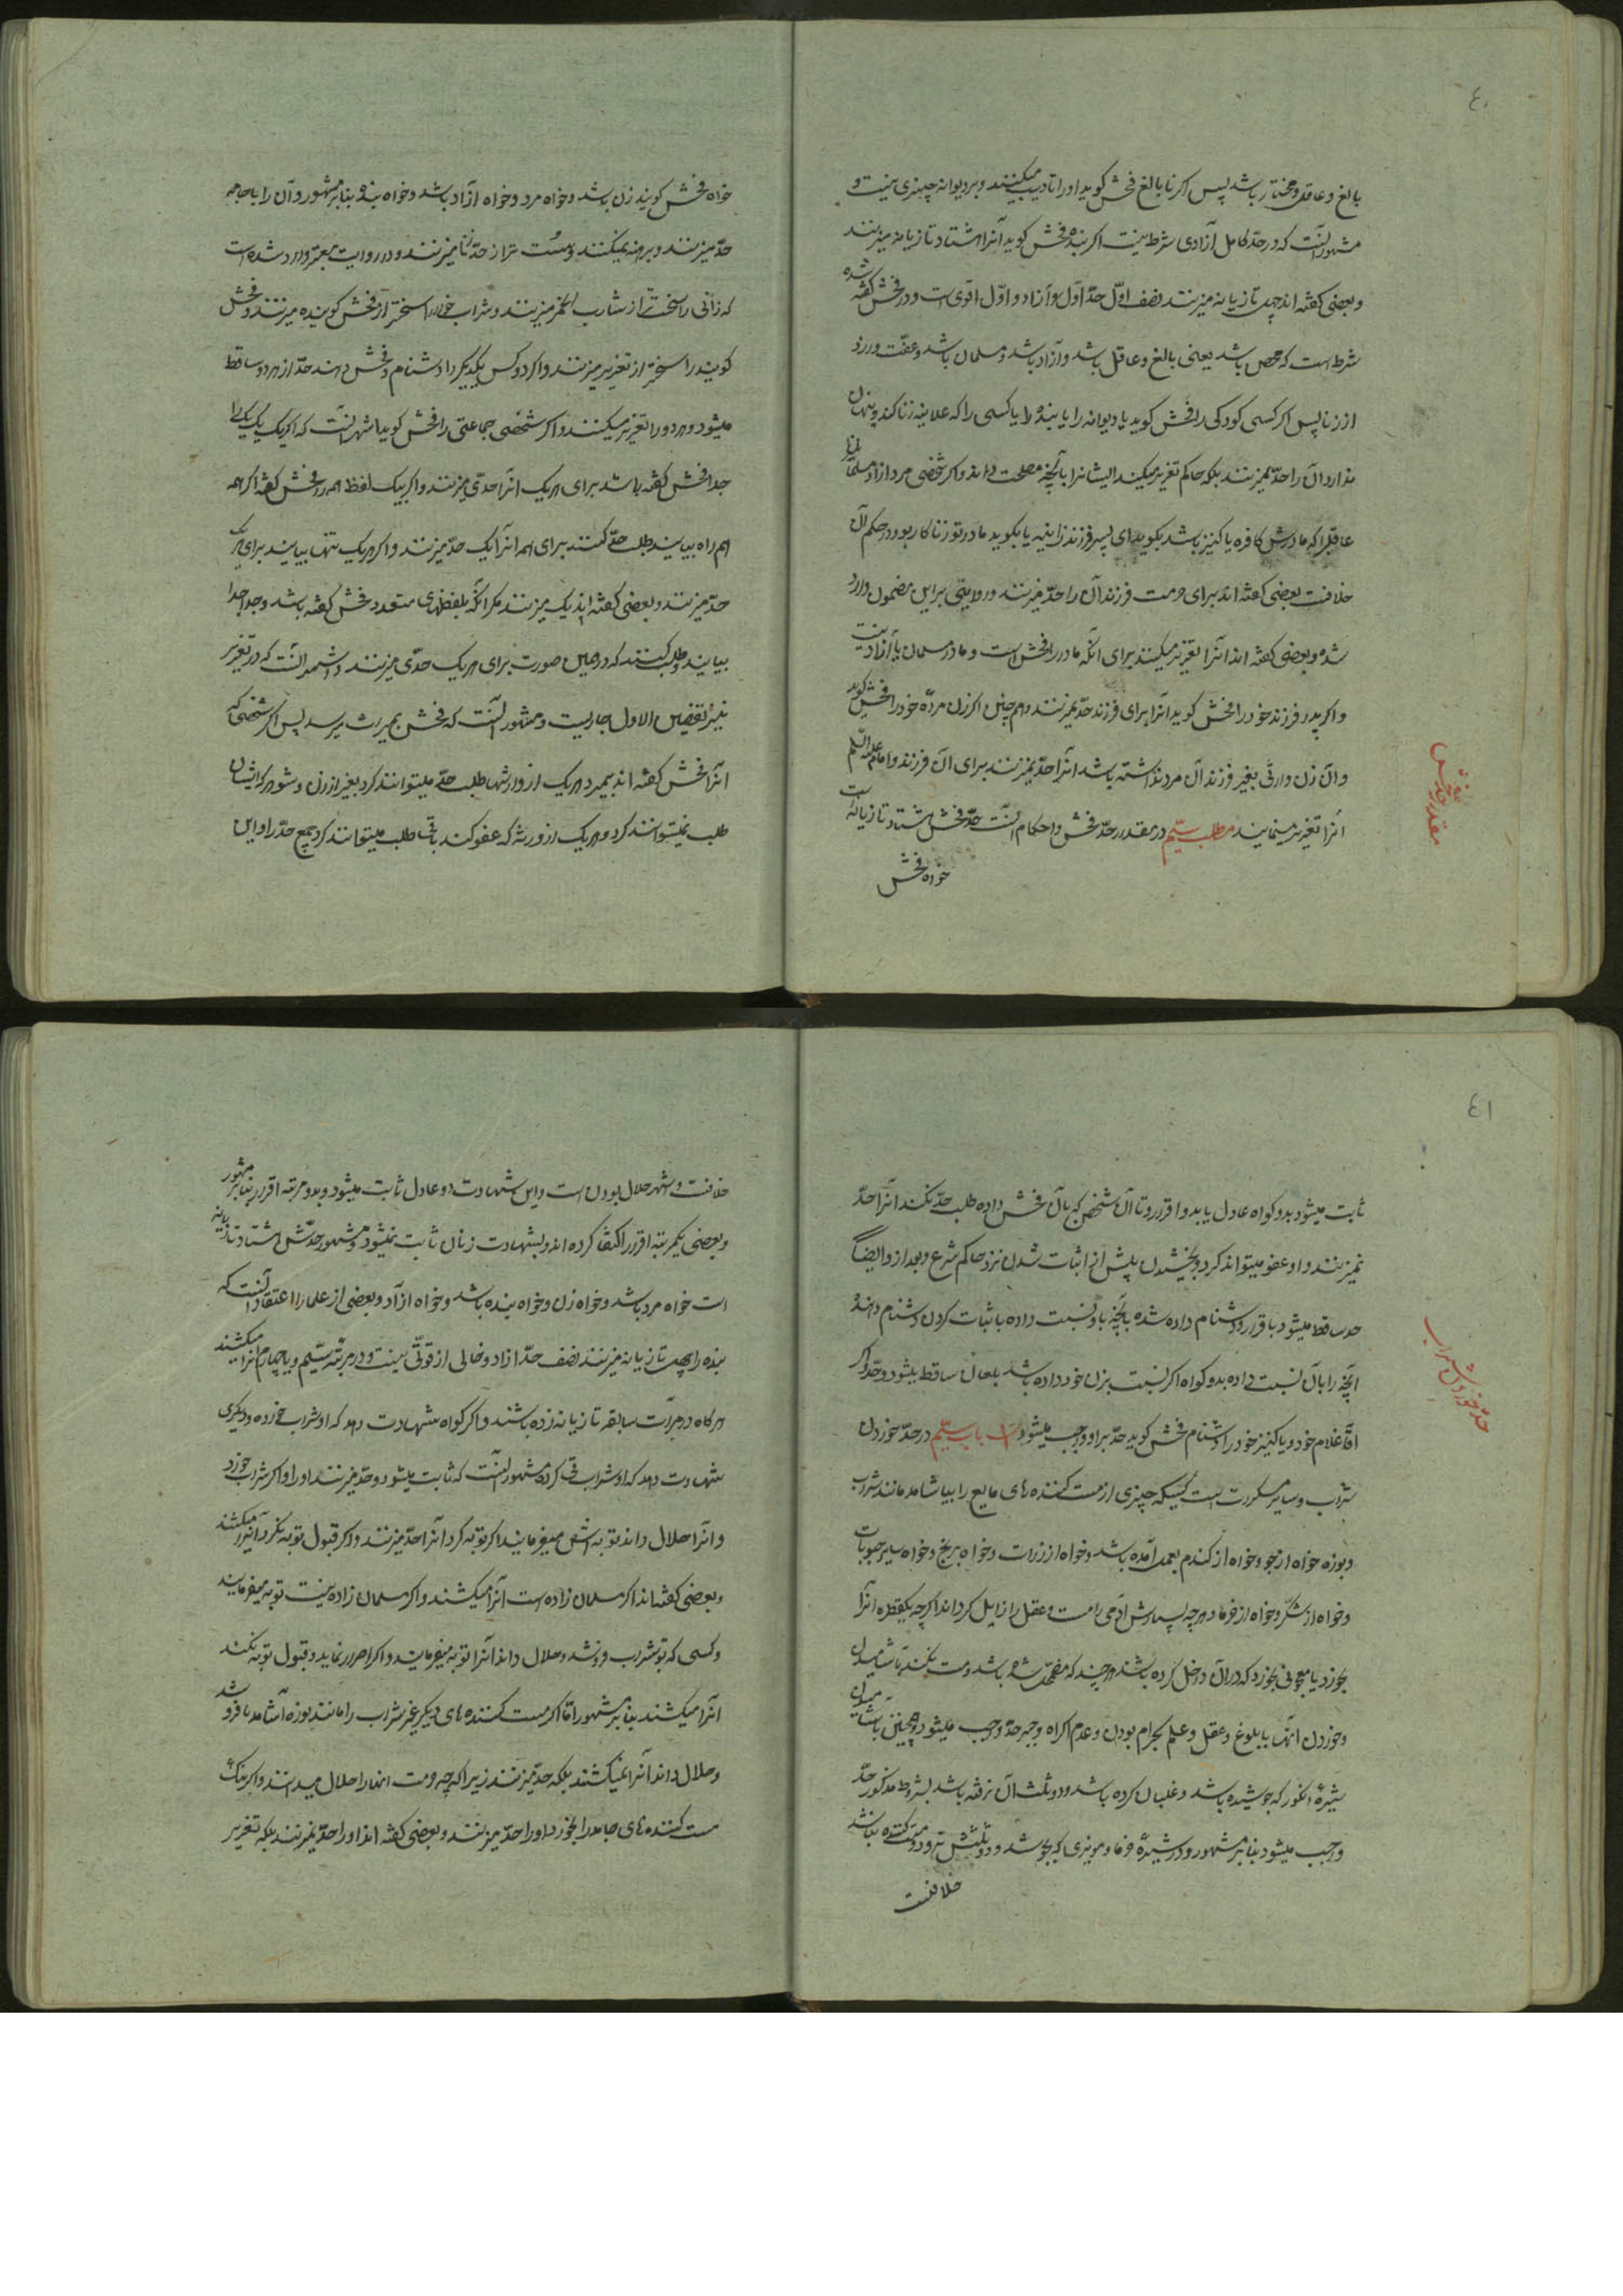 ٤٠
بالغ و عاقل و مختار باشد پس اکر نا بالغ فحش کوید او را تادیب میکنند و بر دیوانه چیزی نیست و
مشهور آنست که در حدّ کامل آزادی شرط نیست اکر بنده فحش کوید آنرا هشتاد تازیانه میزنند
و بعضی کفته اند چهل تازیانه میزنند نصف اوّل حدّ آزاد و اوّل اقوی است و در فحش کفته شده
شرط است که محصن باشد یعنی بالغ و عاقل باشد و آزاد باشد و مسلمان باشد و عفّت ورزد
از زنا پس اکر کسی کودکی را فحش کوید یا دیوانه را یا بنده را یا کسی را که علانیه زنا کند و پنهان
ندارد آن را حدّ نمیزنند بلکه حاکم تعزیر میکند ایشانرا بآنچه مصلحت داند و اکر شخصی مرد ازاد مسلمان
عاقلرا که مادرش کافره یا کنیز باشد بکوید ای پسر فرزند زانیه یا بکوید مادر تو زناکار بود در حکم آن
خلافست بعضی کفته اند برای حرمت فرزند آن را حدّ میزنند و روایتی بر این مضمون وارد
شده و بعضی کفته اند آنرا تعزیر میکنند برای آنکه مادر را فحش است و مادر مسلمان یا آزاد نیست
و اکر پدر فرزند خود را فحش کوید آنرا برای فرزند حدّ نمیزنند و هم چنین اکر زن مردهٔ خود را فحش کوید
و آن زن وارثی بغیر فرزند آن مرد نداشته باشد آنرا حدّ نمیزنند برای آن فرزند و امام علیه السّلم
آنرا تعزیر مینمایند مطلب سیّم در مقدار حدّ فحش و احکام آنست حدّ فحش هشتاد تازیانه است
خواه فحش
مقدار حدّ فحش
خواه فحش کویند زن باشد و خواه مرد و خواه ازاد باشد و خواه بنده بنا بر مشهور و آن را با جامه
حدّ میزنند و برهنه نمیکنند و سست تر از حدّ زنا میزنند و در روایت معتبر وارد شده است
که زانی را سخت تر از شارب الخمر میزنند و شراب خوار را سختر از فحش کوینده میزنند و فحش
کویند را سختر از تعزیر میزنند و اکر دو کس یکدیکر را دشنام و فحش دهند حدّ از هر دو ساقط
میشود و هر دو را تعزیر میکنند و اکر شخصی جماعتی را فحش کوید اشهر آنست که اکر یک یک را
جدا فحش کفته باشد برای هر یک آنرا حدّی میزنند و اکر بیک لفظ همه را فحش کفته اکر همه
همراه بیایند و طلب حدّ کنند برای همه آنرا یک حدّ میزنند و اکر هر یک تنها بیایند برای هر یک
حدّ میزنند و بعضی کفته اند یک میزنند مکر آنکه بلفظهای متعدد فحش کفته باشد و جدا جدا
بیایند و طلب کنند که در این صورت برای هر یک حدّی میزنند و اشهر آنست که در تعزیر
نیز تفصیل الاول جاریست و مشهور آنست که فحش بمیراث میرسد پس اکر شخصی که
آنرا فحش کفته اند بمیرد هر یک از وارثها طلب حدّ میتوانند کرد بغیر از زن و شوهر که ایشان
طلب نمیتوانند کرد و هر یک از ورثه که عفو کند باقی طلب میتوانند کرد جمیع حدّ را و این
٤١
ثابت میشود بدو کواه عادل یا بدو اقرار و تا آن شخص که بآن فحش داده طلب حدّ نکند آنرا حدّ
نمیزنند و او عفو میتواند کرد و بخشیدن پیش از اثبات شدن نزد حاکم شرع و بعد از و ایضاً
حد ساقط میشود باقرار دشنام داده شده بآنچه باو نسبت داده باثبات کردن دشنام دهنده
آنچه را بآن نسبت داده بدو کواه اکر نسبت بزن خود داده باشد بلعان ساقط میشود و حدّ و اکر
آقا غلام خود و یا کنیز خود را دشنام فحش کوید حدّ بر او واجب میشود باب سیّم در حدّ خوردن
شراب و سایر مسکرات است کسیکه چیزی از مست کننده های مایع را بیاشامد مانند شراب
و بوزه خواه از جو و خواه از کندم بعمل آمده باشد و خواه از ذرات و خواه برنج و خواه سایر حبوبات
و خواه از شکّر و خواه از خرما و هر چه بسیارش آدمی را مست و عقل را زایل کرداند اکرچه یکقطره آنرا
بخورد یا معجونی بخورد که در آن داخل کرده باشند هر چند که مضمحل شده باشد و مست نکند بآشامیدن
و خوردن آنها با بلوغ و عقل و علم بحرام بودن و عدم اکراه و جبر حدّ واجب میشود و همچنین بآشامیدن
شیرهٔ انکور که جوشیده باشد و غلیان کرده باشد و دو ثلث آن نرفته باشد بشروط مذکور حدّ
واجب میشود بنا بر مشهور و در شیرهٔ خرما و مویزی که بجوشد و دو ثلثش نرود و مست کننده نباشد
خلافست
حدّ خوردن شراب
خلافست و اشهر حلال بودن است و این بشهادت دو عادل ثابت میشود و بدو مرتبه اقرار بنا بر مشهور
و بعضی بیکمرتبه اقرار اکتفا کرده اند و بشهادت زنان ثابت نمیشود و مشهور حدّش هشتاد تازیانه
است خواه مرد باشد و خواه زن و خواه بنده باشد و خواه آزاد و بعضی از علما را اعتقاد آنست که
بنده را چهل تازیانه میزنند نصف حدّ ازاد و خالی از قوّتی نیست و در مرتبه سیّم و یا چهارم آنرا میکشند
هر کاه در مرّات سابقه تازیانه زده باشند و اکر کواه شهادت دهد که او شراب خورده و دیکری
شهادت دهد که او شراب قی کرده مشهور آنست که ثابت میشود و حدّ میزنند او را و اکر شراب خورد
و آنرا حلال داند توبه اش میفرمایند اکر توبه کرد آنرا حدّ میزنند و اکر قبول توبه نکرد آنرا میکشند
و بعضی کفته اند اکر مسلمان زاده است آنرا میکشند و اکر مسلمان زاده نیست توبه میفرمایند
و کسی که شراب فروشد و حلال داند آنرا توبه میفرمایند و اکر اصرار نماید و قبول توبه نکند
آنرا میکشند بنا بر مشهور امّا اکر مست کننده های دیکر غیر شراب را مانند بوزه آشامد یا فروشد
و حلال داند آنرا نمیکشند بلکه حدّ میزنند زیرا که چه حرمت آنها را حلال میدانند و اکر بنک
مست کننده های جامد را بخورد او را حدّ میزنند و بعضی کفته اند او را حدّ نمیزنند بلکه تعزیر